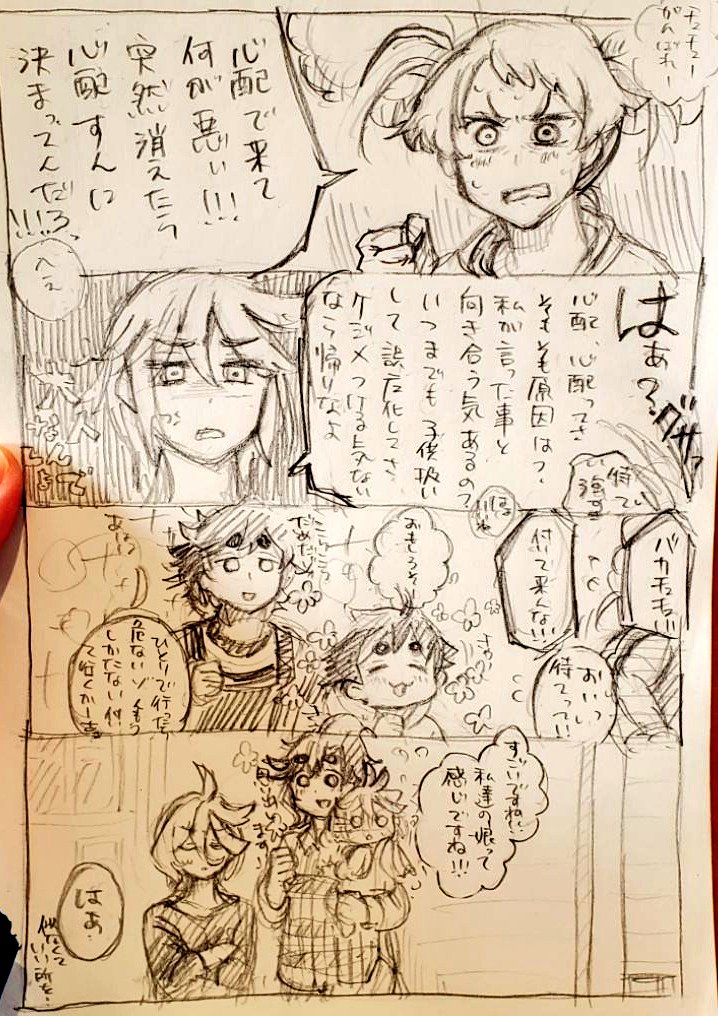 チュチュー
がんばれー
心配で来て
何が悪い!!!
突然消えたら
心配すんに
決まってんだろ
!!!!
へぇ
はぁ?
グサッ
心配、心配ってさ
そもそも原因は?
私が言った事と
向き合う気あるの?
いつまでも子供扱い
して誤 化してさ、
ケジメつける気ない
なら帰りなよ
バカチュチュ!!
付いて来んな!!
おいっ
待てって!!
おもしろそー
ひとりで行ったら
危ないゾ
すごいですね!
私達の娘って
感じですね!!!
思い出しますー
はぁ
似なくて
いい所を…